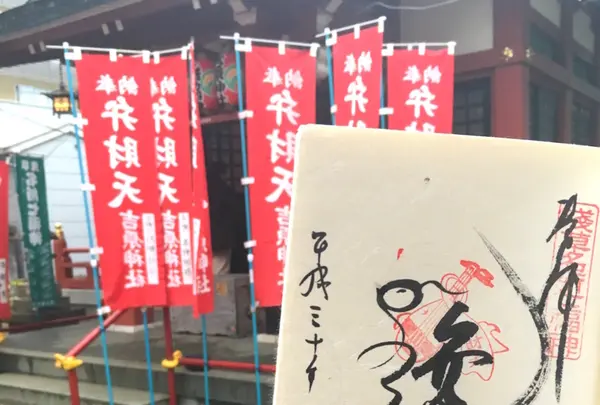 奉納
弁財天
吉原神社
納
弁財天
吉原神社
奉納
弁財天
吉原
奉納
弁
奉納
弁
名所七福神
奉拝
淺草名所七福神
平成三十
弁